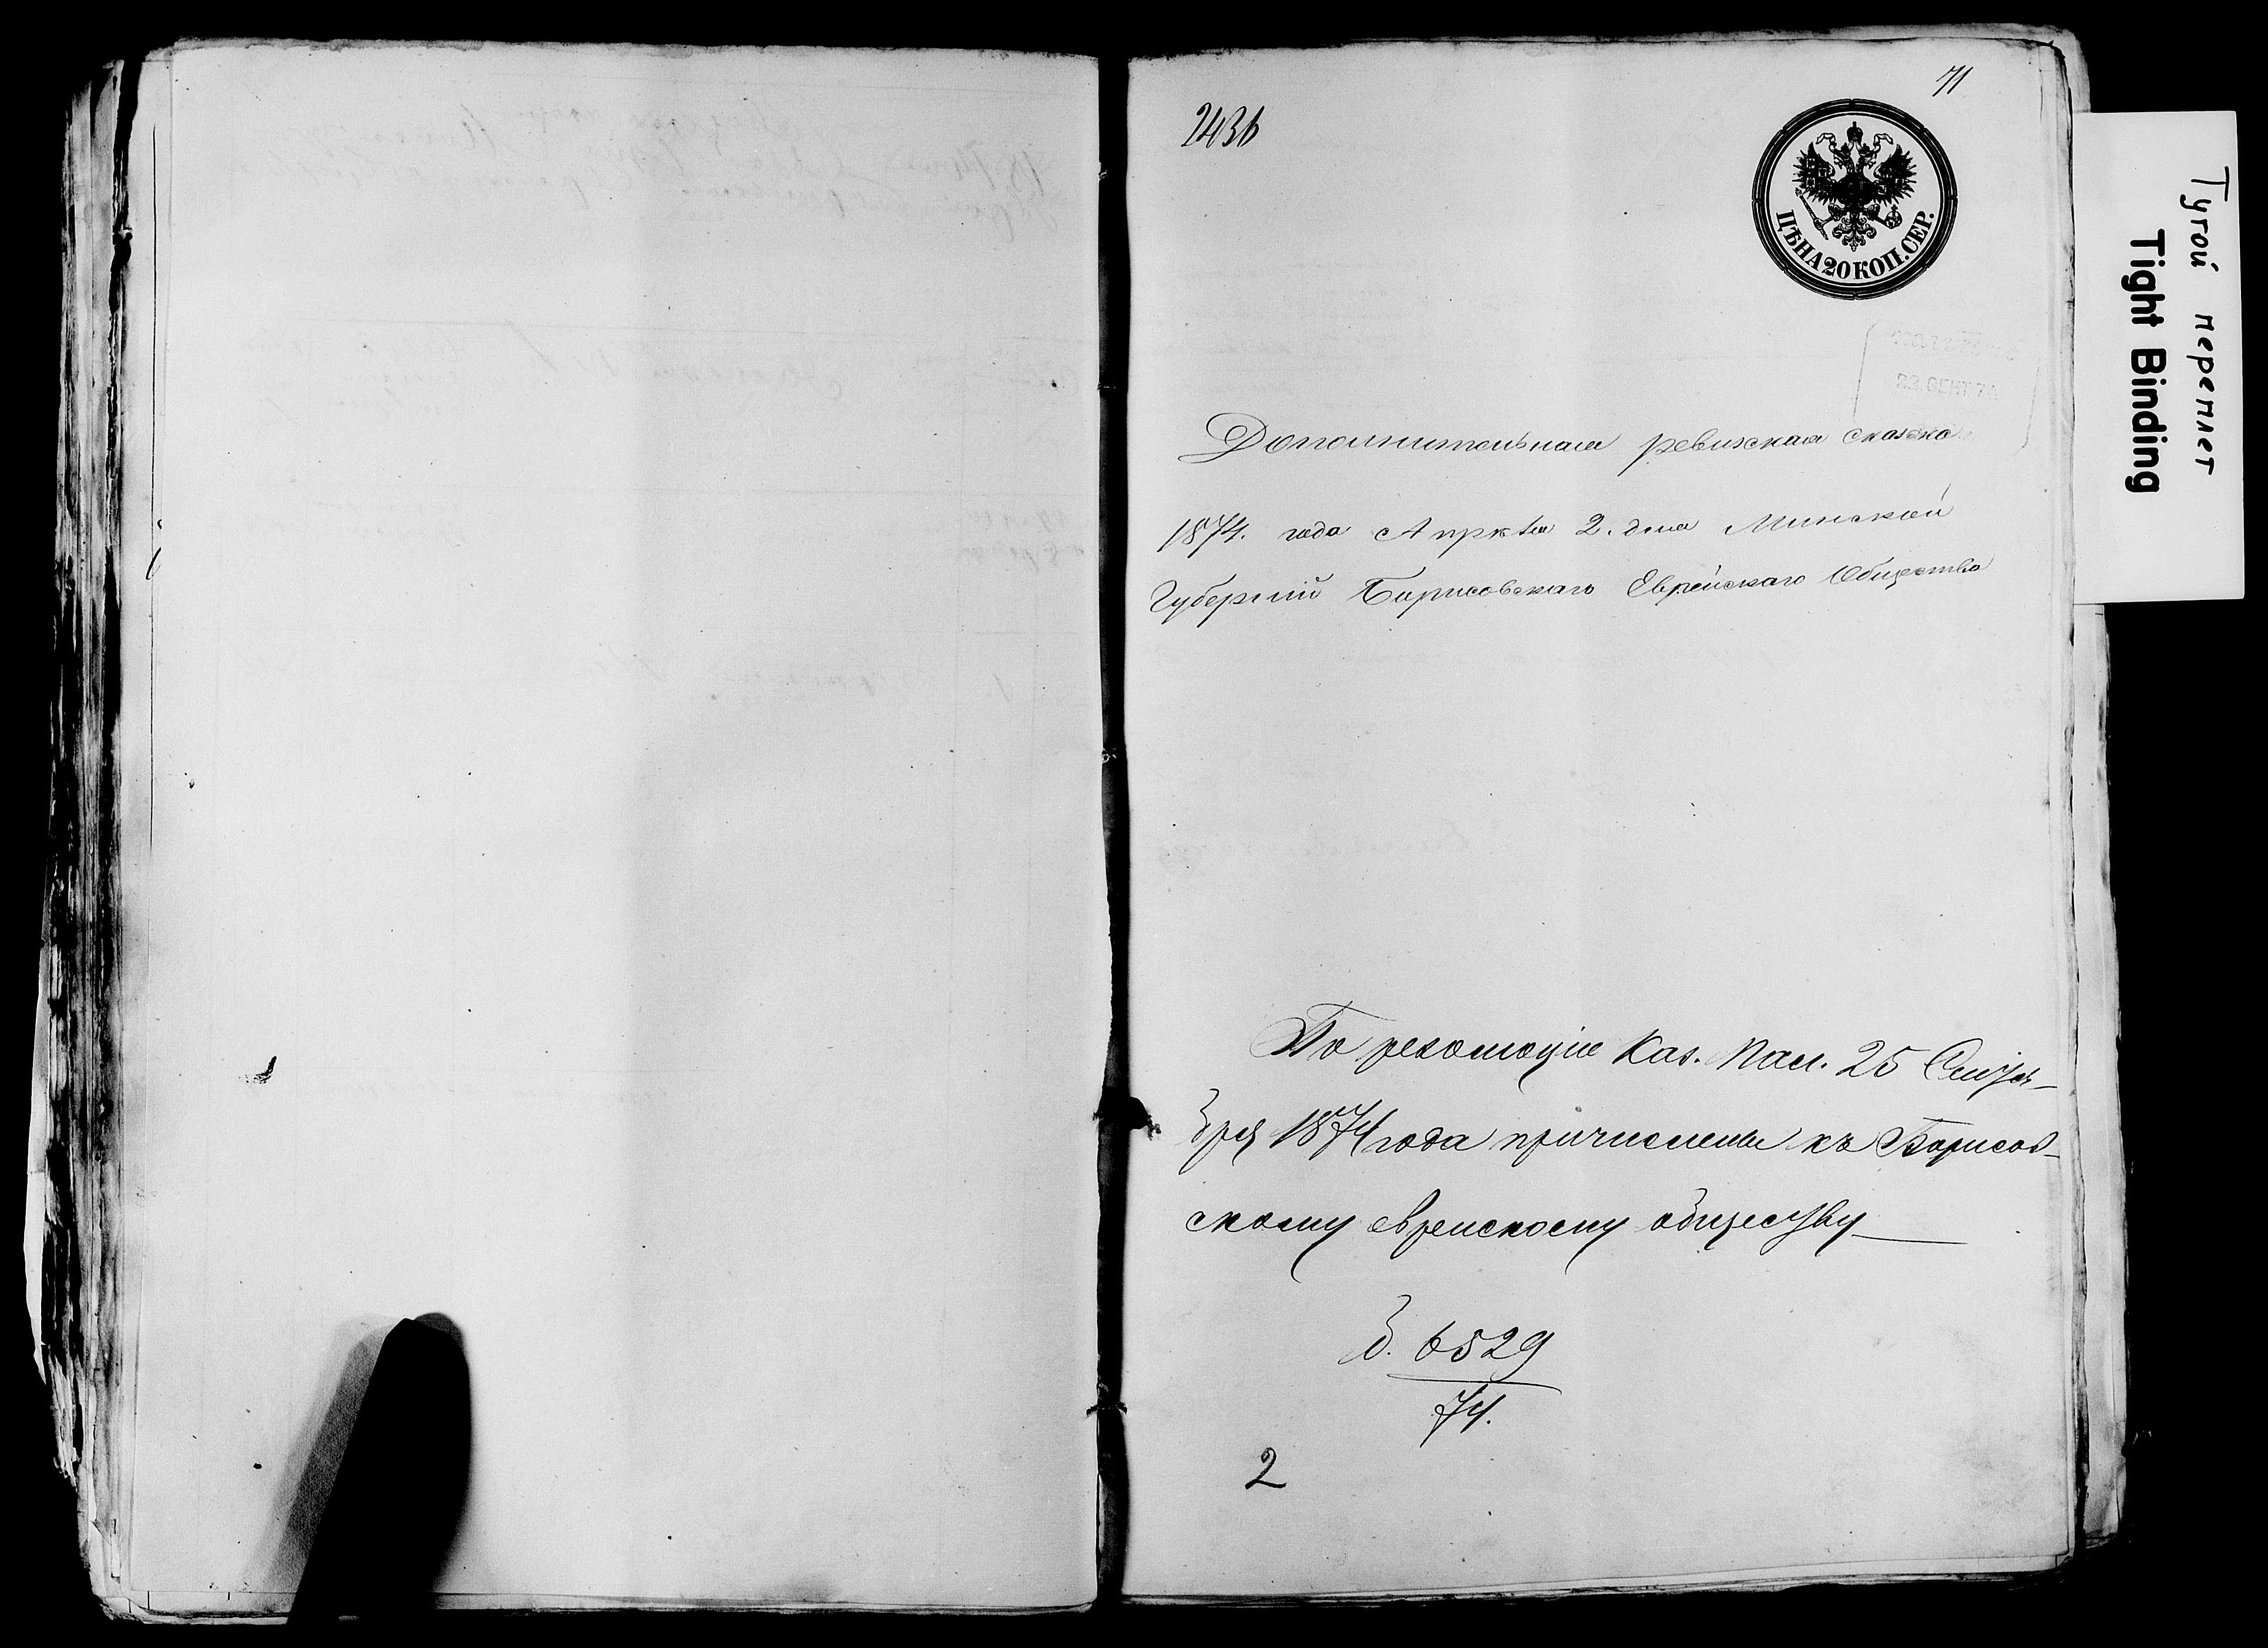 71
2436
ЦѢНА 20 КОП. СЕР.
Дополнительная ревизская сказка
1874. года Апрѣля 2. дня Минской
Губерніи Борисовскаго Еврейскаго Общества
По резолюціи Каз. Пал. 25 Сентя-
бря 1874 года причислены къ Борисов-
скому еврейскому обществу
д. 6529
74.
2
Тугой переплет
Tight Binding